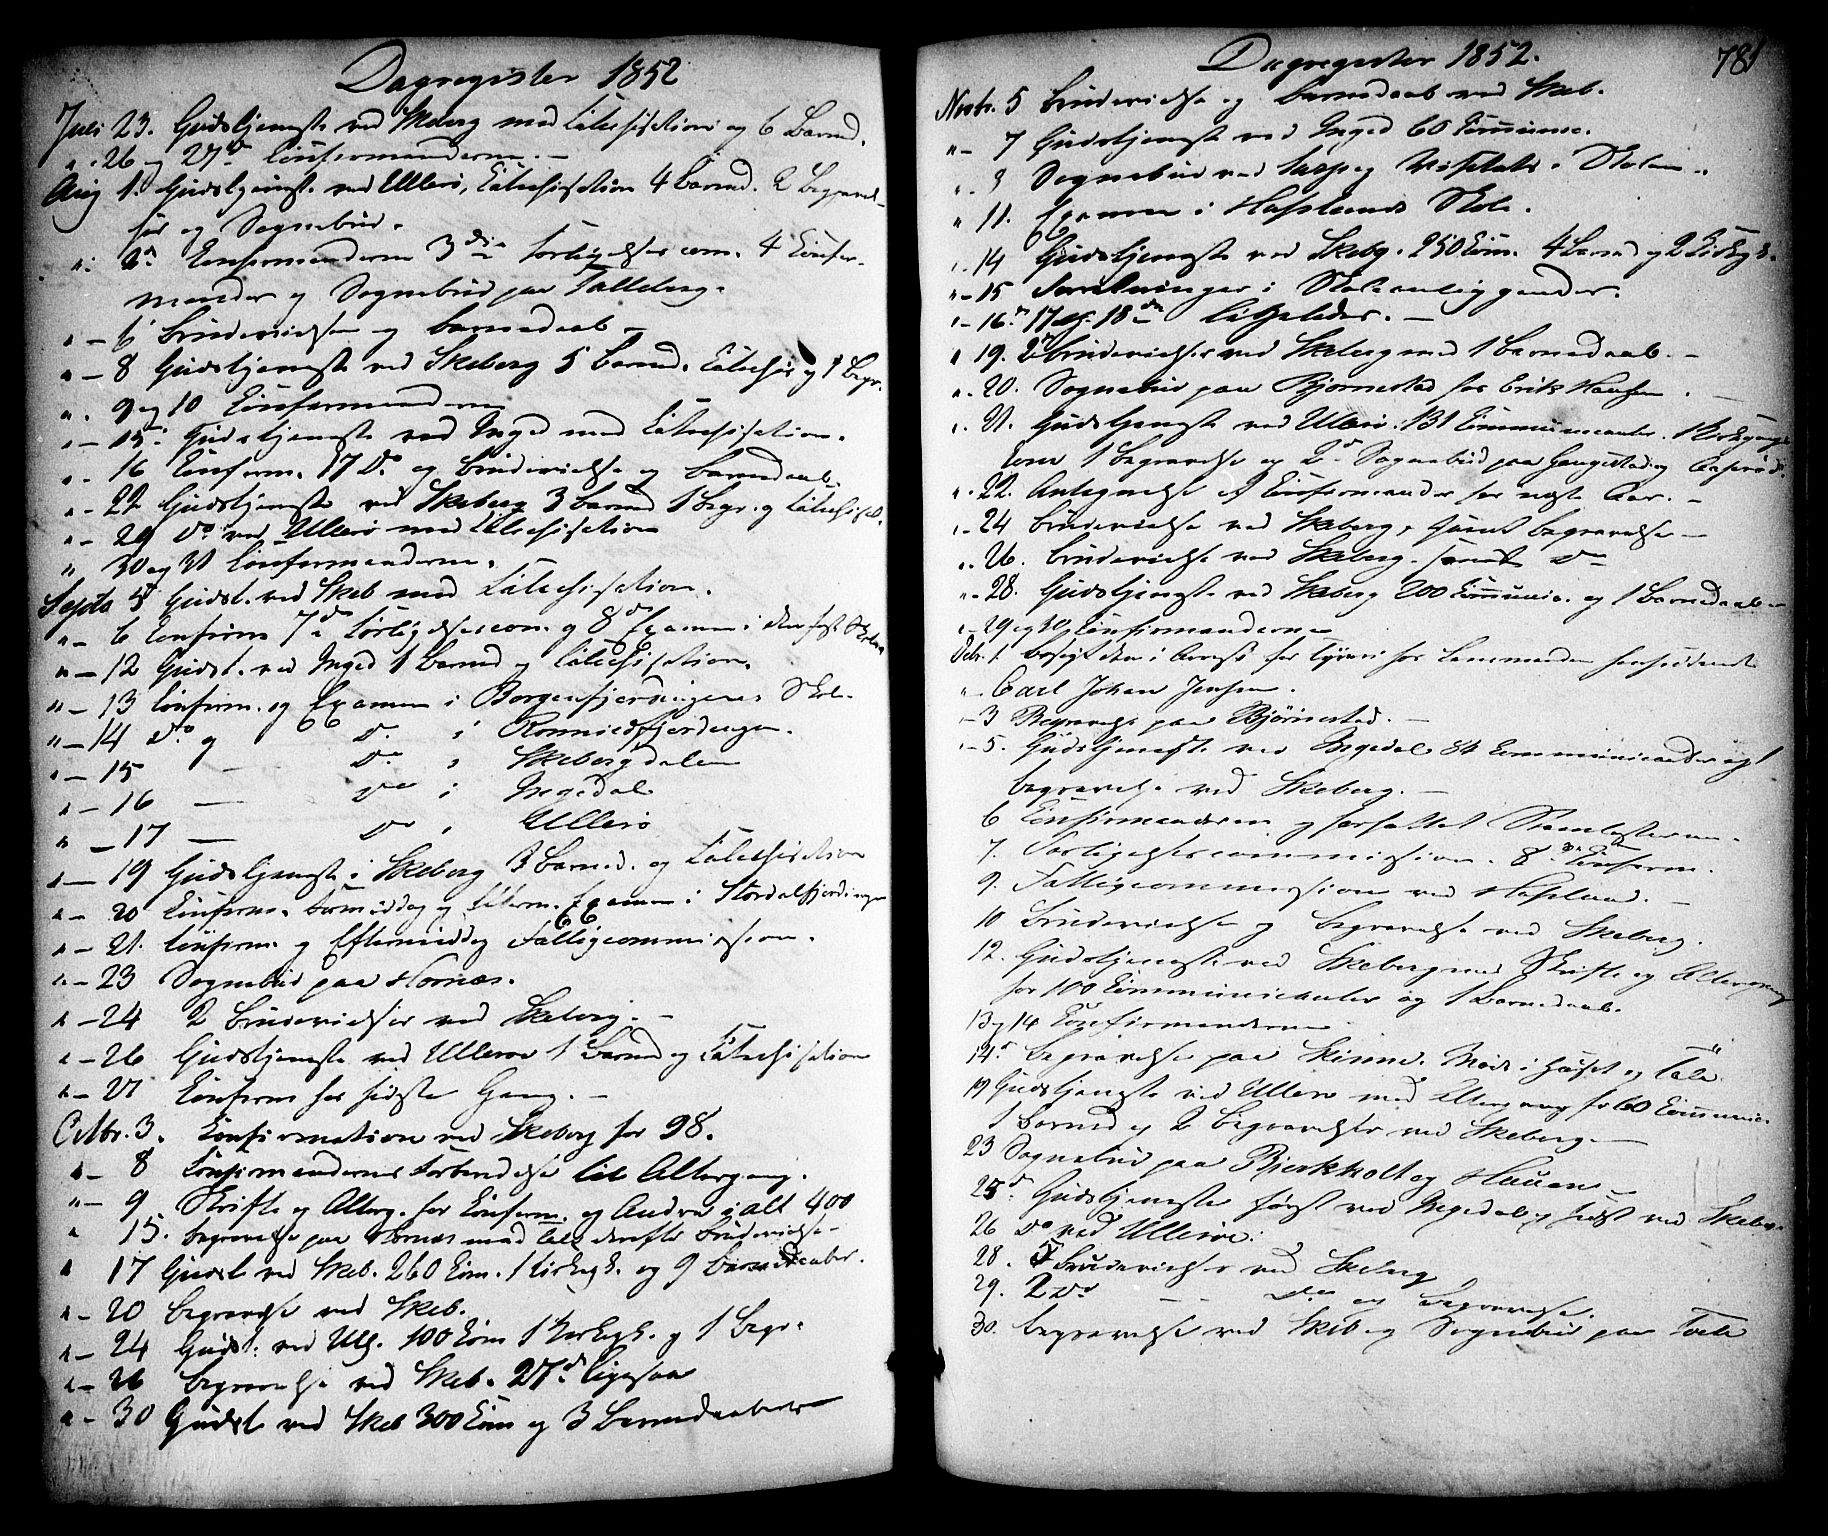 Dagregister 1852
Juli 23. Gudstjeneste ved Skeberg med Catechisation og 6 Barned.
" 26 og 27de Confirmanderne. –
Aug 1. Gudstjenest. ved Ullerö, Catechisation 4 Barned. 2 Begravel-
ser og Sognebud.
" 2n Confirmanderne 3die Forligelsescom. 4 Confir-
mander og Sognebud paa
" – 6 Brudevielse og Barnedaab –
" – 8 Gudstjeneste ved Skeberg 5 Barned. og 1 Begr.
" 9 og 10 Confirmanderne
" – 15 Gudstjeneste ved Inged med Catechisation.
" – 16 Confirm. 17 Do og Brudevielse og Barnedaab
" – 22 Gudstjeneste ved Skeberg 3 Barned 1 Begr. og Catechisat.
" – 29 Do ved Ullerö med Catechisation
" 30 og 31 Confirmanderne.
Septb 5 Gudst. ved Skeb med Catechisation.
" – 6 Confirm 7de Forligelsescom. og 8de Examen i den faste Skole
" – 12 Gudst. ved Inged 1 Barned og Catechisation.
" – 13 Confirm. og Examen i Borgenfjerdingens Skol.
" – 14 Do og Do i
" – 15 — Do i Skebergdalen
" – 16 — Do i Ingedal
" – 17 — Do i Ullerö
" – 19 Gudstjeneste i Skeberg 3 Barned. og Catechisation
" – 20 Confirm. Formiddag og Efterm. Examen i
" – 21. Confirm. og Eftermiddag Fattigcommission.
" – 23 Sognebud paa Hornæs.
" – 24 2 Brudevielser ved Skeberg. –
" – 26 Gudstjeneste ved Ulleröe 1 Barned og Catechisation
" – 27 Confirm for sidste Gang. –
Octbr. 3. Confirmation ved Skeberg for 98.
" – 8 Confirmandernes Forberedelse til Altergang.
" – 9 Skrifte og Alterg. for Confirm. og Andre i alt 400
" 15. Begravelse paa Hornæs med Tale derefter Brudevielse –
" 17 Gudst ved Skeb. 260 Com. 1 Kirkegk. og 9 Barnedaaber.
" – 20 Begravelse ved Skeb.
" – 24 Gudst. ved Ull. 100 Com 1 Kirkegk. og 1 Begr.
" – 26 Begravelse ved Skeb. 27de ligesaa
" – 30 Gudst ved Skeb 300 Com og 3 Barnedaaber
Dagregister 1852.
781
Novbr. 5 Brudevielse og Barnedaab ved Skeb.
" – 7 Gudstjeneste ved Inged 60 Commune.
" . 9 Sognebud ved
" 11. Examen i Hafslunds Skole.
" . 14 Gudstjeneste ved Skebg. 250 Com. 4 Barned og 2 Kirkegk.
" – 15 i Skoleanliggender.
" – 16n 17 og 18de ligeledes. –
" 19. 2de Brudevielser ved Skeberg med 1 Barnedaab. –
" . 20. Sognebud paa Bjørnestad for Erik Hansen.
" . 21. Gudstjeneste ved Ullerö. 131 Communicanter. 1 Kirkegangs-
kone 1 Begravelse og 2de Sognebud paa
" . 22. Antegnelse af Confirmander for næste Aar. –
" . 24 Brudevielse ved Skeberg, samt Begravelse –
" . 26. Brudevielse ved Skeberg. samt Do
" . 28. Gudstjeneste ved Skeberg 200 Communic. og 1 Barnedaab –
" – 29 og 30 Confirmanderne
Debr. 1. Besøgt den i Arrest for Tyveri hos Lensmanden
" Carl Johan Jensen.
" – 3 Begravelse paa Bjørnestad. –
" – 5. Gudstjeneste ved Ingedal 84 Communicander og 1
Begravelse ved Skeberg. –
6 Confirmanderne og forfattet
7. Forligelsescommission. 8de Confirm.
9. Fattigcommission ved Hafslund. –
10 Brudevielse og Begravelse ved Skeberg.
12. Gudstjeneste ved Skeberg med Skrifte og Altergang
for 100 Communicanter og 1 Barnedaab.
13 og 14 Confirmanderne
14n Begravelse paa Skinne. Møde i Huset og Tale
19 Gudstjeneste ved Ullerö med Altergang for 60 Communic
1 Barned og 2 Begravelser ved Skeberg. –
23 Sognebud paa Bjerkholt og Hauen –
25de. Gudstjeneste først ved Ingedal og sidst ved Skeberg
26 Do ved Ulleröe.
28. 5 Brudevielser ved Skeberg
29. 2 Do – – Do og Begravelse.
30. Begravelse ved Skeb og Sognebud paa